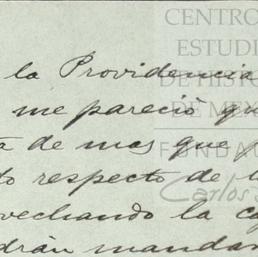 CENTRO
ESTUDI
DE HISTOR
DE MEX
FUNDA
Carlos
la Providencia
me pareció qu
de mas que p
to respecto de l
vechando la c
drán mandar